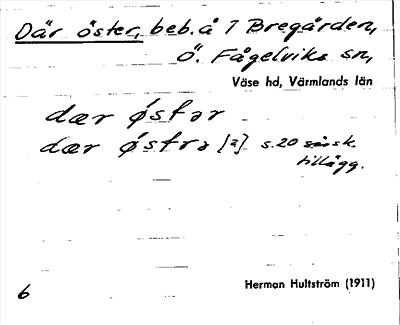 Där öster, beb. å 7 Bregården,
Ö. Fågelviks sn,
Väse hd, Värmlands län
dær østər
dær østrə [2] s. 20 särsk.
tillägg.
Herman Hultström (1911)
6